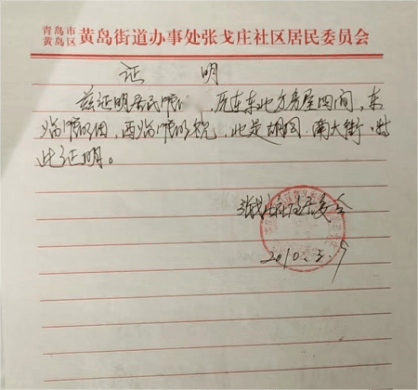 青岛市黄岛区黄岛街道办事处张戈庄社区居民委员会
证 明
兹证明居民 ,原在东北方房屋四间,东
临 ,西临 ,北是胡同,南大街.特
此证明。
张戈庄社区居委会
2010.3.9